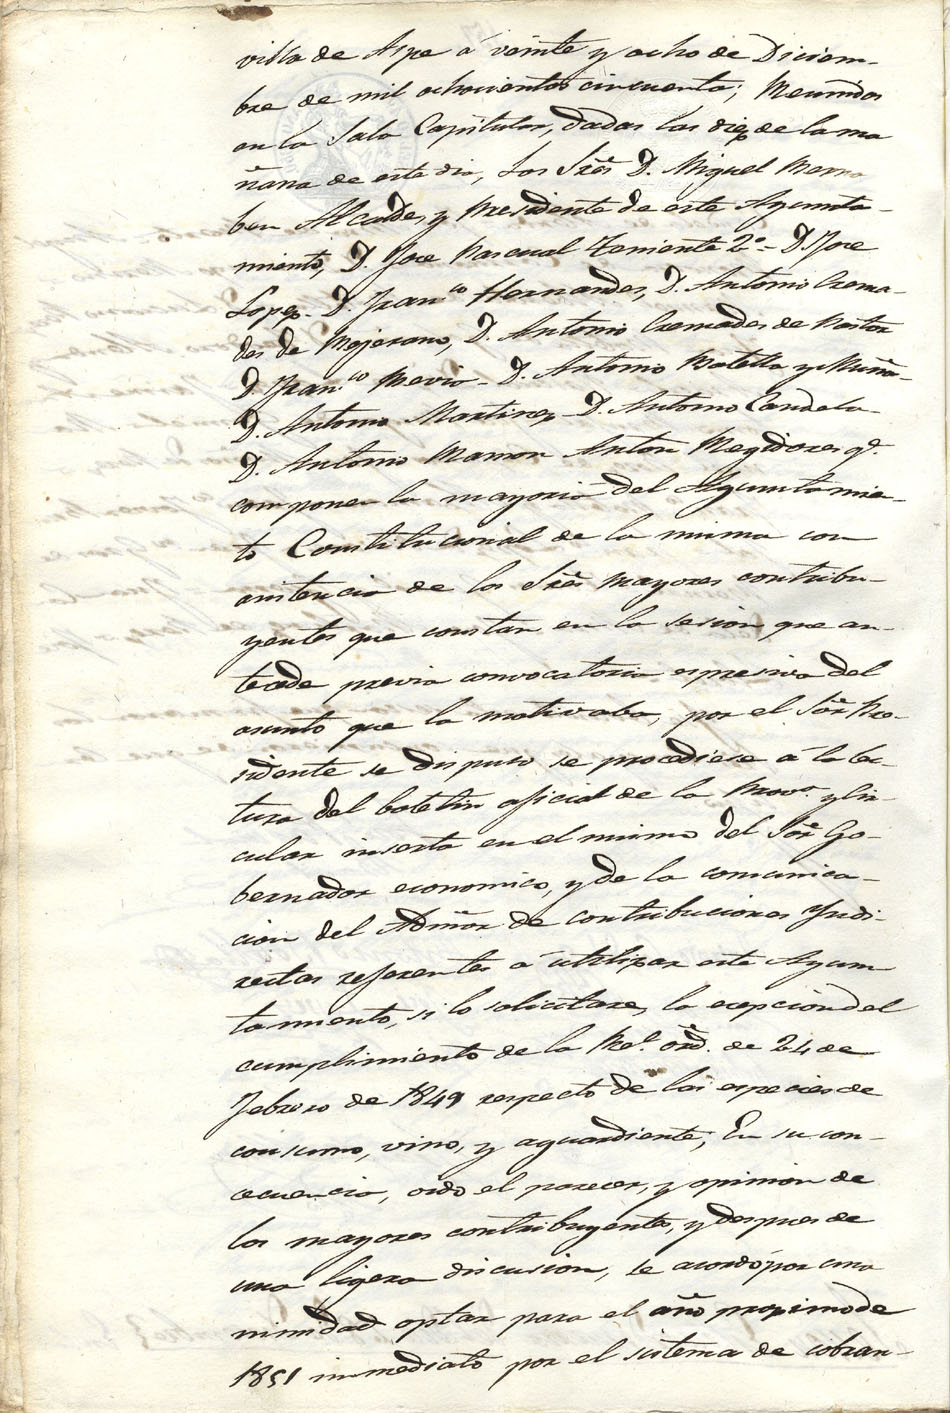 villa de Aspe á veinte y ocho de Diciem-
bre de mil ochocientos cincuenta; Reunidos
en la Sala Capitular, dadas las diez de la ma
ñana de este dia, Los Sres D. Miguel
ben Alcalde, y Presidente de este Ayunta-
miento, D. Jose Pascual Teniente 2º - D. Jose
Lopez - D. Franco Hernandez, D. Antonio Crema-
des de Mojerano, D. Antonio Cremades de Pastor
D. Franco - D. Antonio Botella y Muñoz-
D. Antonio Martinez - D. Antonio Candela
D. Antonio Ramon Anton Regidores q.
componen la mayoria del Ayuntamien-
to Constitucional de la misma con
asistencia de los Sres mayores contribu-
yentes que constan en la sesion que an-
tecede previa convocatoria espresiva del
asunto que la motivaba, por el Sor Pre-
sidente se dispuso se procediese á la lec-
tura del boletin oficial de la Prova. y Cir-
cular inserta en el mismo del Sor Go-
bernador economico, y de la comunica-
cion del Admor de contribuciones Yndi-
rectas referentes á utilizar este Ayun
tamiento, si lo solicitare, la ecepcion del
cumplimiento de la Rel. ord. de 24 de
Febrero de 1849 respecto de las especies de
consumo, vino, y aguardiente; En su con-
cecuencia, oido el parecer, y opinion de
los mayores contribuyentes, y despues de
una ligera discusion, se acordó por una
nimidad optar para el año proximo de
1851 inmediato por el sistema de cobran-